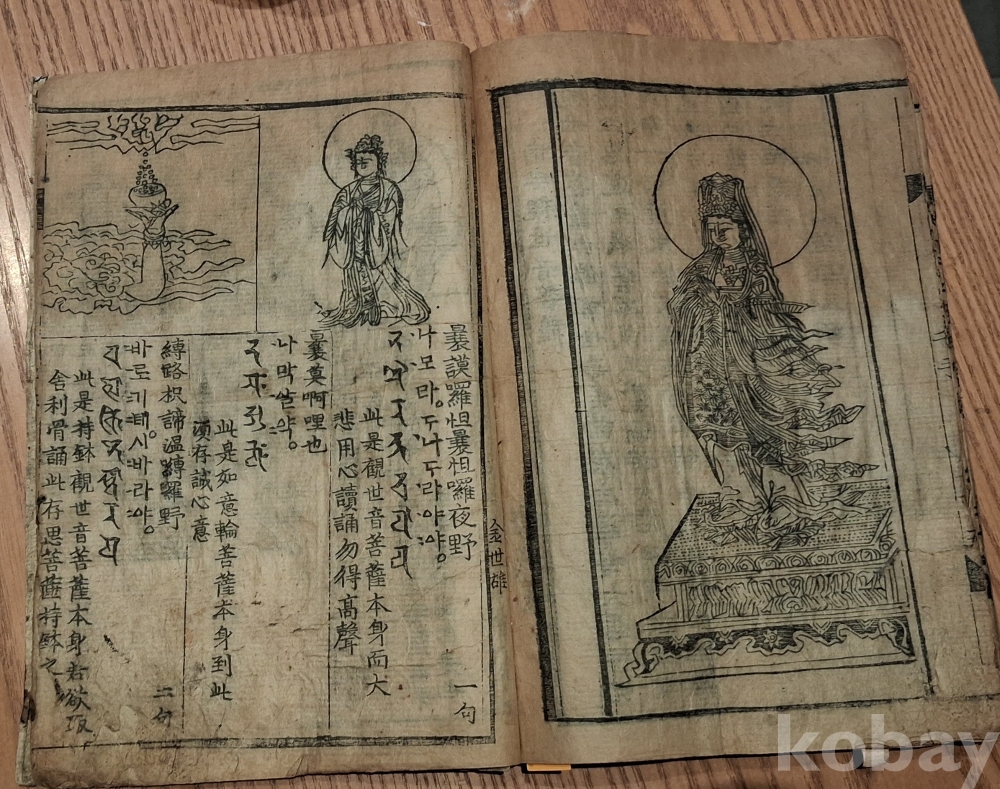 金世雄
曩謨羅怛曩怛囉夜野 一句
나모라ᇰ도나도라야야ᇰ
此是觀世音菩薩本身而大
悲用心讀誦勿得高聲
曩莫啊哩也
나막알야ᇰ
此是如意輪菩薩本身到此
須存誠心意
縛路枳諦濕縛羅野 二句
바로기데시바라야ᇰ
此是持鉢觀世音菩薩本身若欲取
舍利骨誦此存思菩薩持鉢之
kobay